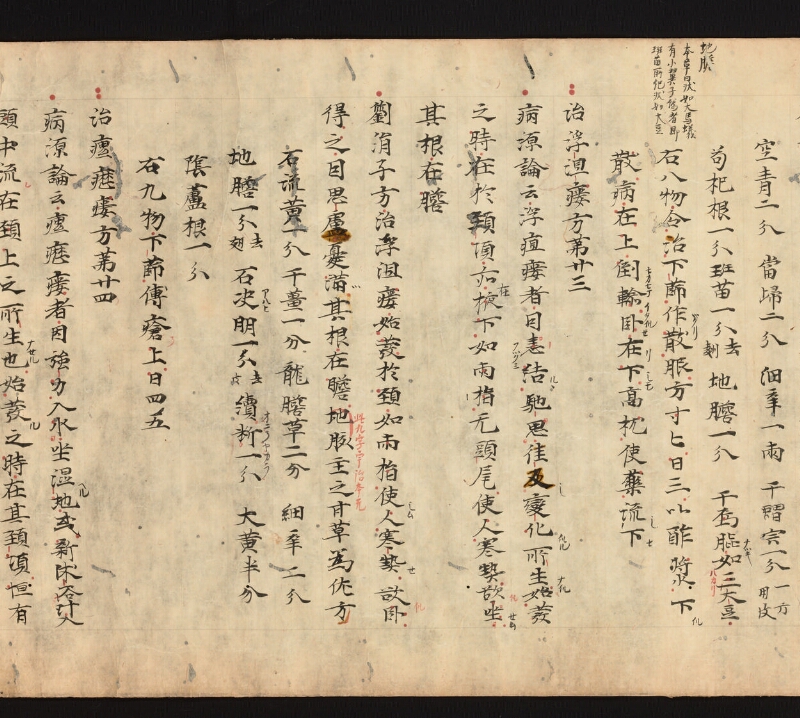 地膽
本草曰状如大馬蟻
有小翼子偽者即
班苗所化状如大豆
空青二分 當歸二分 細辛一両 干
一方
苟杞根一分 班苗一分去 地膽一分 干 如三大豆
右八物合治下篩作散服方寸匕日三以酢漿下
散病在上倒輸臥在下高枕使藥流下
治浮沮瘻方第廿三
病源論云浮疽瘻者因恚結馳思往反變化所生始發
之時在於頸項在掖下如兩指无頭尾使人寒熱欲坐
其根在膽
劉涓子方治浮沮瘻始發於頸如兩指使人寒熱欲臥
得之因思慮憂懣其根在膽地膽主之甘草為佐方
石流黄一分 干薑一分 龍膽草二分 細辛二分
地膽一分去翅 石决明一分去 續斷一分 大黄半分
蘆根一分
右九物下篩傅瘡上日四五
治瘻方第廿四
病源論云瘻者因強力入水坐湿地或新沐浴汗入
頭中流在頸上之所生也始發之時在其頸項恒有